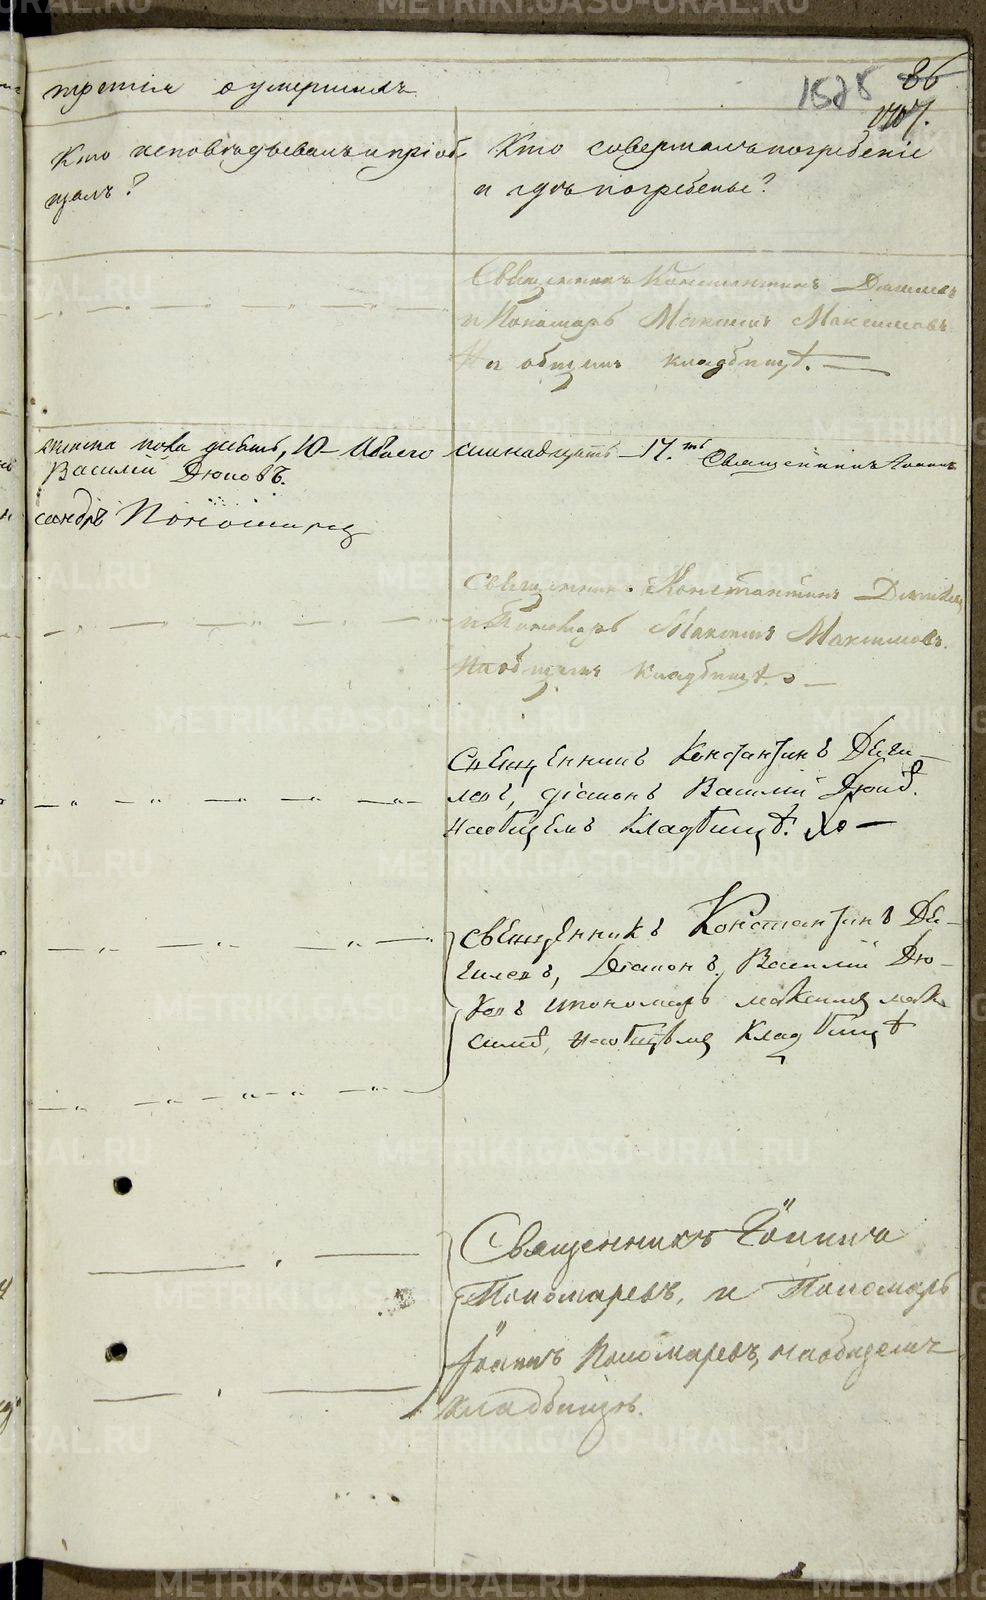 третія о умершихъ
1525 86
1107.
Кто исповѣдывалъ и пріоб
щалъ?
Кто совершалъ погребеніе
и гдѣ погребены?
Священникъ Константинъ
и Пономарь Максимъ Максимовъ
На общемъ кладбищѣ.
пола девять, 10 - Обоего
семнадцать - 17.ть Священникъ Іоаннъ
Василій Дюковъ.
Пономарь
Священникъ Константинъ
и Пономарь Максимъ Максимовъ.
на общемъ кладбищѣ.
Священникъ Константинъ
діаконъ Василій Дюков.
на общемъ кладбищѣ.
священникъ Константинъ
Діаконъ Василій Дю-
ковъ и пономарь максимъ мак
симов, на общемъ кладбищѣ
Священникъ Іоаннъ
Пономаревъ, и Пономарь
Іоаннъ Пономаревъ, на общемъ
кладбищѣ.
METRIKI.GASO-URAL.RU